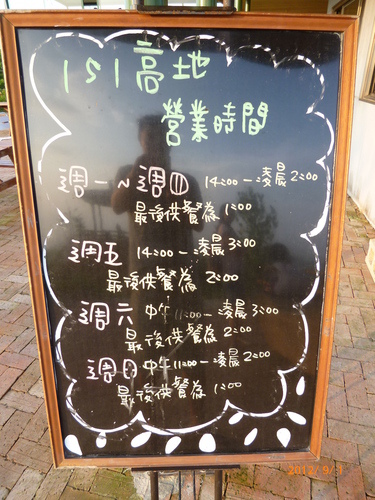 151高地
營業時間
週一~週四 14:00-淩晨2:00
最後供餐為 1:00
週五 14:00-淩晨3:00
最後供餐為 2:00
週六 中午11:00-淩晨3:00
最後供餐為 2:00
週日中午11:00-淩晨2:00
最後供餐為 1:00
2012/ 9/ 1